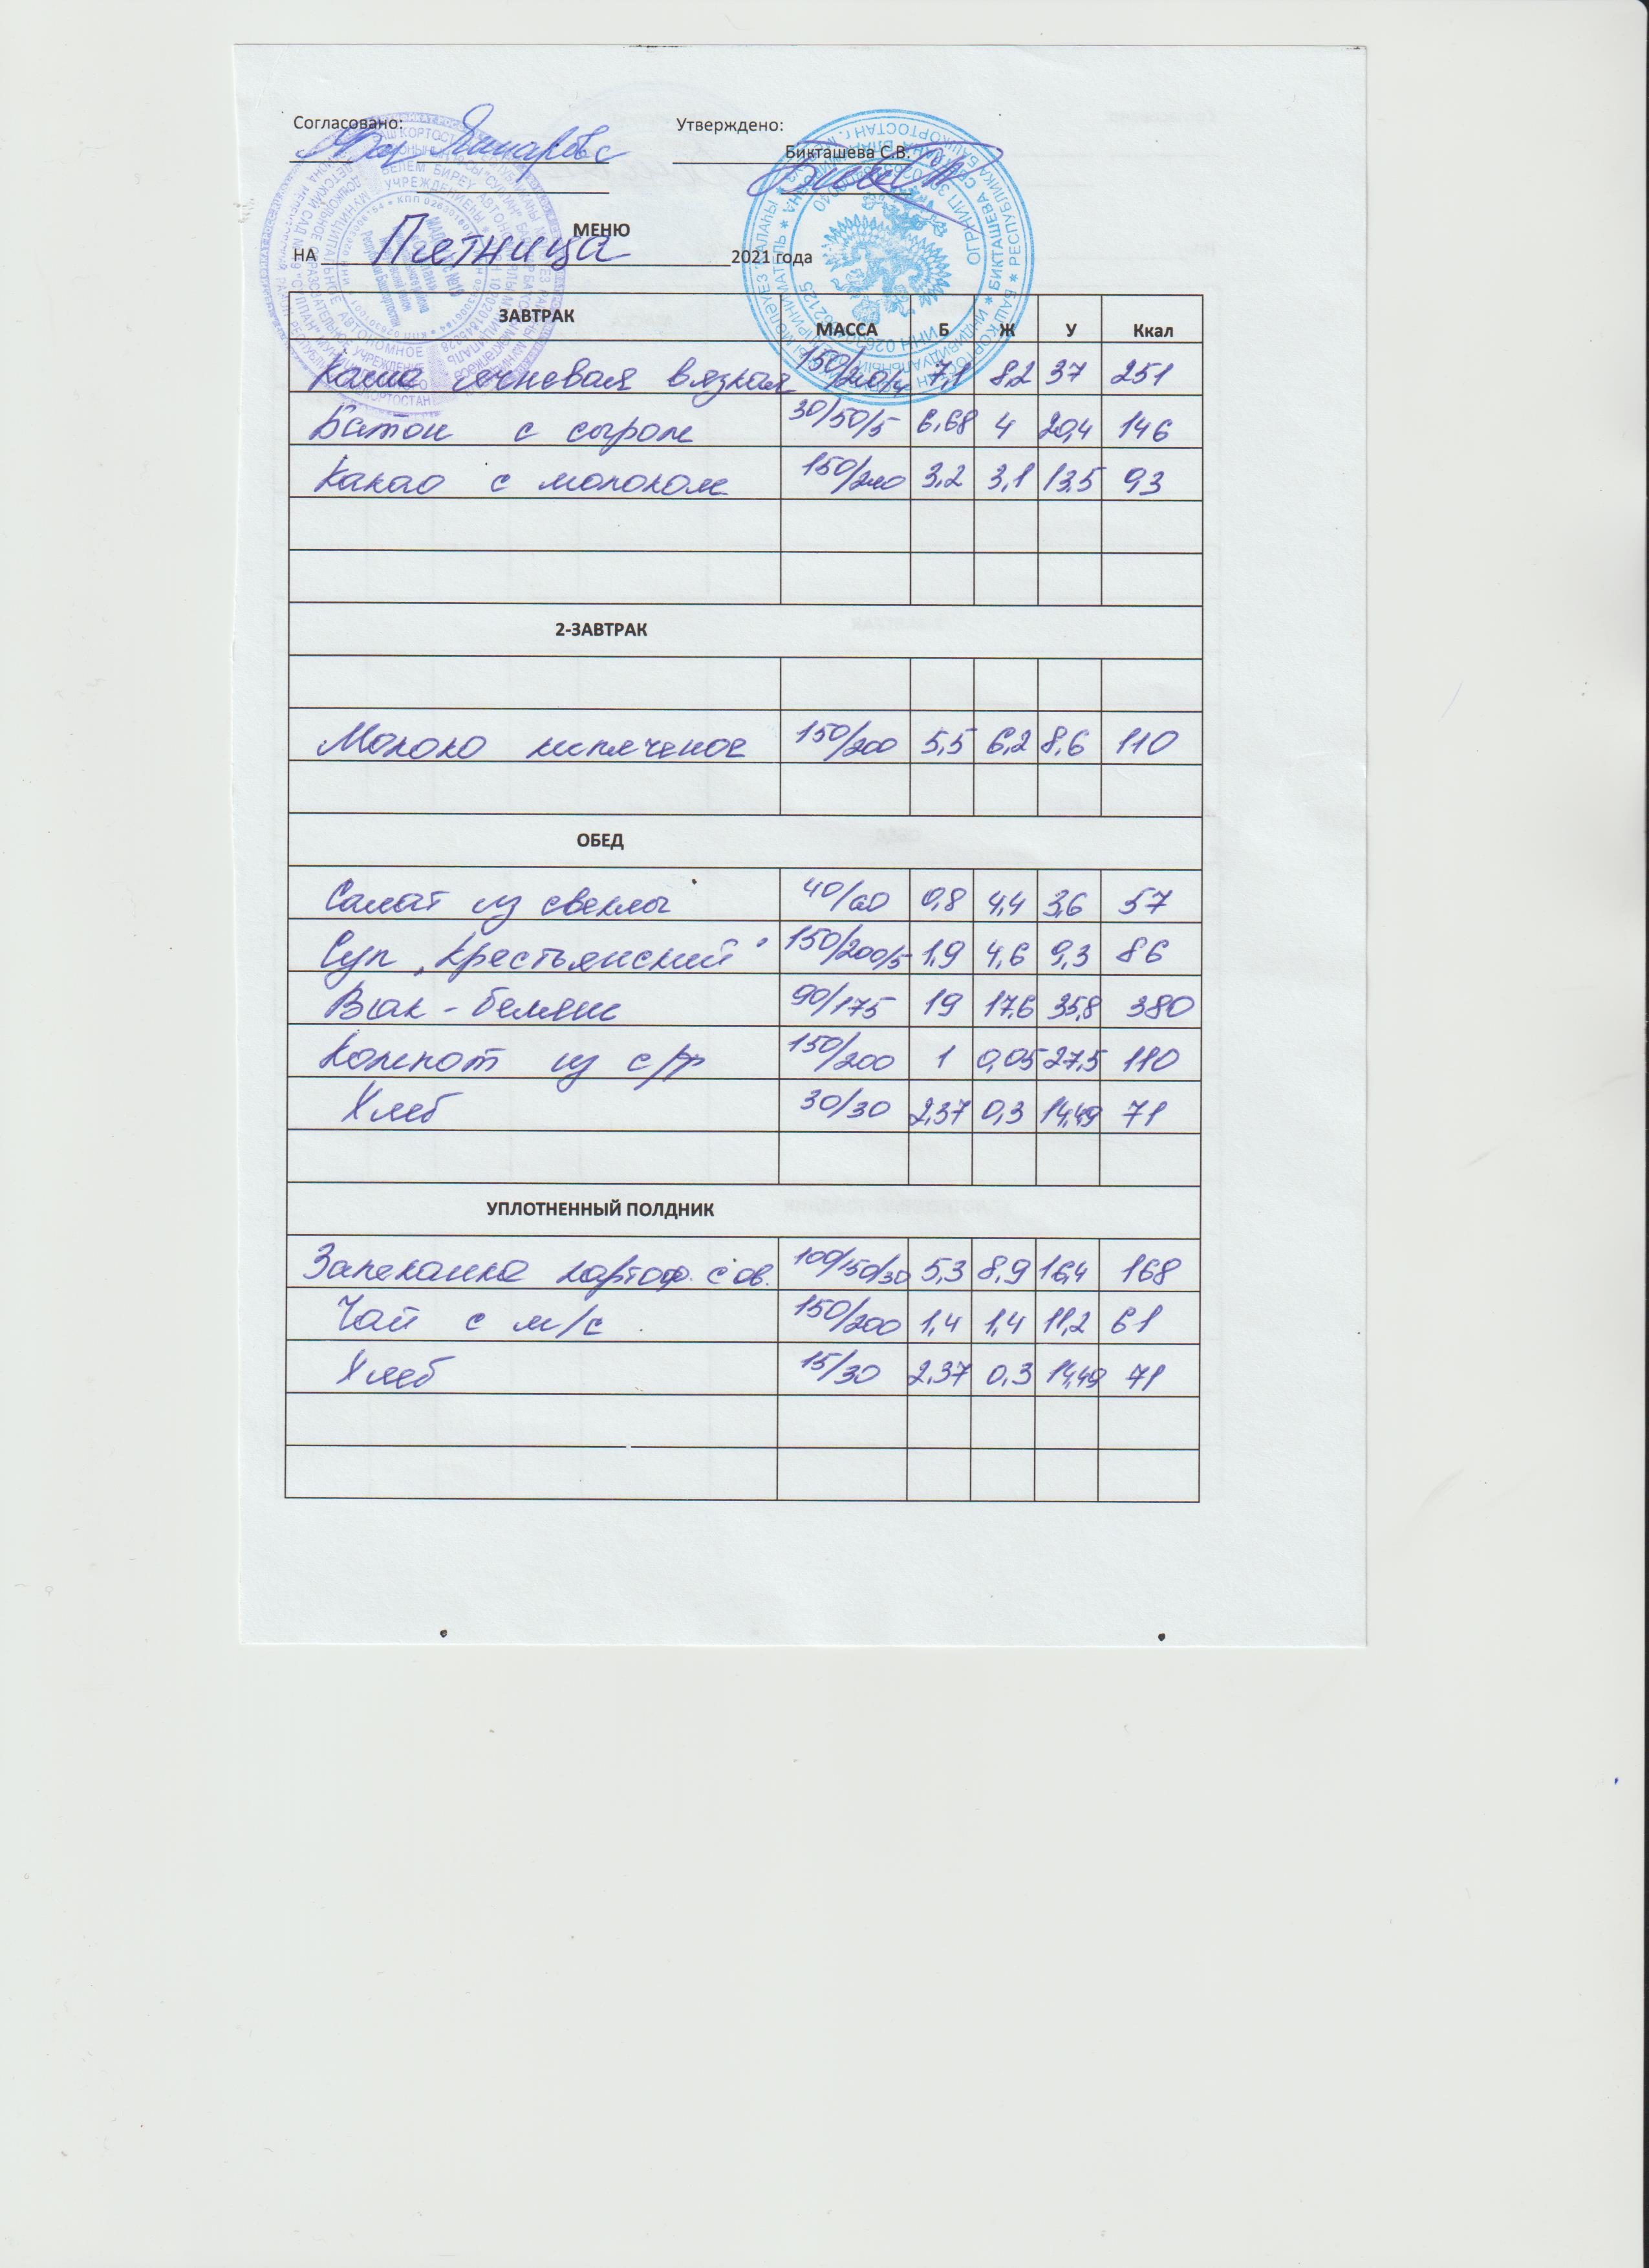 Согласовано: Утверждено:
Бикташева С.В.
МЕНЮ
НА Пятница 2021 года
ЗАВТРАК МАССА Б Ж У Ккал
Каша вязкая 150/200/4 7,1 8,2 37 251
Батон с сыром 30/50/5 6,68 4 20,4 146
Какао с молоком 150/200 3,2 3,1 13,5 93
2-ЗАВТРАК
Молоко кипяченое 150/200 5,5 6,2 8,6 110
ОБЕД
Салат из свеклы 40/60 0,8 4,4 3,6 57
Суп "Крестьянский" 150/200/5 1,9 4,6 9,3 86
Вак-беляш 90/175 19 17,6 35,8 380
Компот из с/ф 150/200 1 0,05 27,5 110
Хлеб 30/30 2,37 0,3 14,49 71
УПЛОТНЕННЫЙ ПОЛДНИК
Запеканка картоф. с ов. 100/150/30 5,3 8,9 16,4 168
Чай с м/с 150/200 1,4 1,4 11,2 61
Хлеб 15/30 2,37 0,3 14,49 71